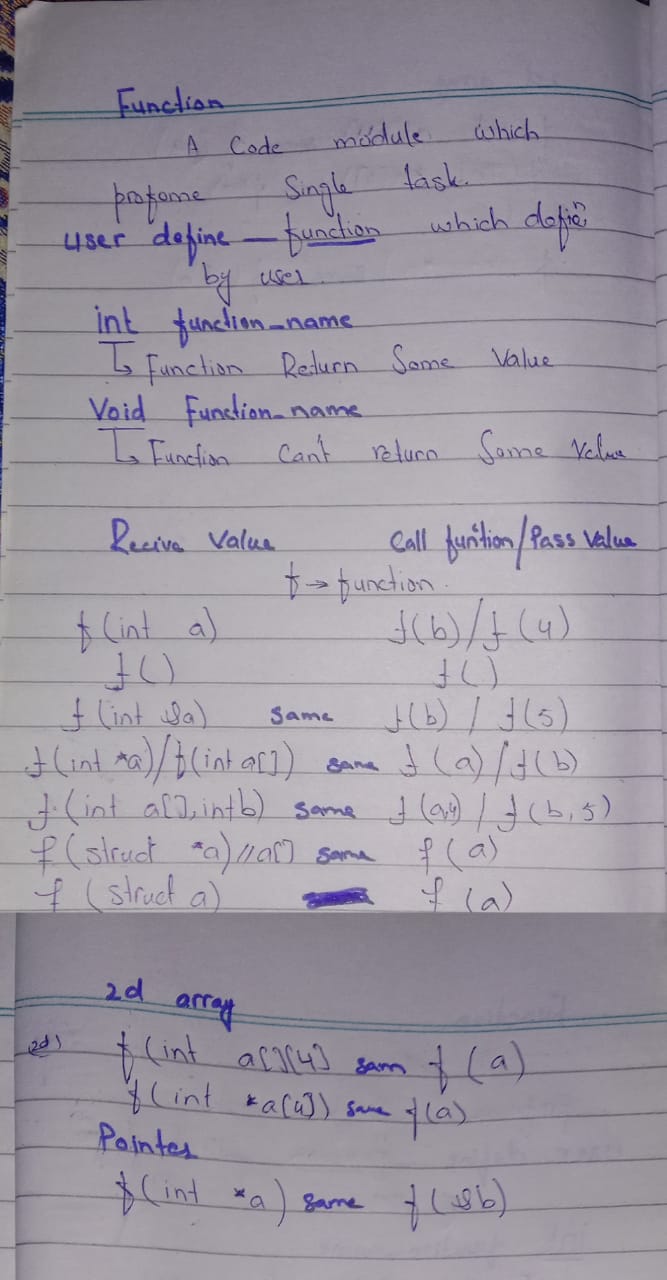 Function
A Code module which
profome Single task.
user define — function which defien
by user.
int function_name
↳ Function Return Some Value
Void Function_name
↳ Function Can't return Some Value
Recive Value Call funtion/Pass Value
f → function.
f (int a) f(b)/f(4)
f() f()
f (int &a) same f(b) / f(5)
f(int *a)/f(int a[]) same f (a)/f(b)
f (int a[], int b) same f(a,4) / f(b,5)
f (struct *a)//a[] same f(a)
f (struct a) f (a)
2d array
2d) f(int a[][4] sam f (a)
f(int *a[4]) same f(a)
Pointer
f(int *a) same f(&b)